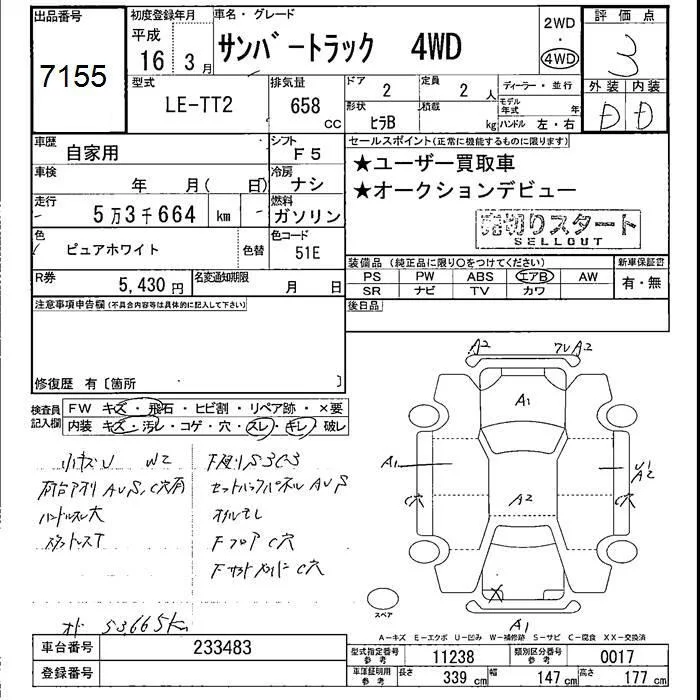 出品番号
7155
初度登録年月
平成
16年3月
車名・グレード
サンバートラック 4WD
2WD
・
4WD
評価点
3
外装 内装
D D
型式
LE-TT2
排気量
658
CC
ドア
2
定員
2 人
ディーラー・並行
形状
ヒラB
積載
kg
モデル年式 年
ハンドル 左・右
車歴
自家用
シフト
F5
車検
年 月( 日)
冷房
ナシ
走行
5万3千664 km
燃料
ガソリン
色
ピュアホワイト
色替
色コード
51E
R券
5,430 円
名変通知期限
月 日
セールスポイント(正常に機能するものに限ります)
★ユーザー買取車
★オークションデビュー
売切りスタート
SELLOUT
装備品 (純正品に限り○をつけてください)
新車保証書
PS PW ABS エアB AW
SR ナビ TV カワ
有・無
後日品
注意事項申告欄(不具合内容等は具体的に記入して下さい)
修復歴 有〔箇所 〕
検査員記入欄
FW キズ・飛石・ヒビ割・リペア跡・×要
内装 キズ・汚レ・コゲ・穴・スレ・キレ・破レ
小キズU W2
荷台アオリ AUS,C穴有
ハンドルスレ大
ステップスT
F廻りS3C3
セットバックパネル AUS
オイルモレ
FフロアC穴
C穴
オド 53,665Km
A2
フレA2
A1
A1
U1
A2
C穴
A2
C穴
X
A1
スペア
A-キズ E-エクボ U-凹み W-補修跡 S-サビ C-腐食 XX-交換済
車台番号
233483
登録番号
型式指定番号
参考
11238
類別区分番号
参考
0017
車庫証明用
参考
長さ
339 cm
幅
147 cm
高さ
177 cm